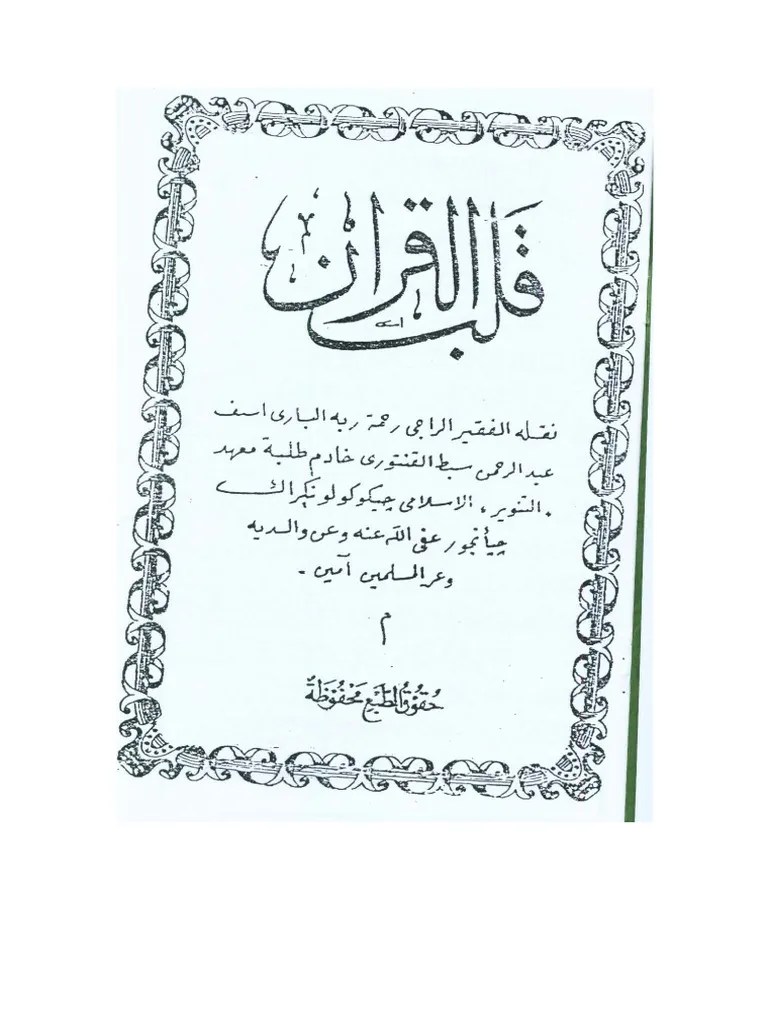 قلب القرآن
نقله الفقير الراجي رحمة ربه الباري اسف
عبد الرحمن سبط القنتوري خادم طلبة معهد
التنوير، الاسلامي چيكوكولو نڮراك
چيأنجور عفى الله عنه وعن والديه
وعن المسلمين آمين.
م
حُقُوْقُ الطَّبْعِ مَحْفُوْظَةٌ